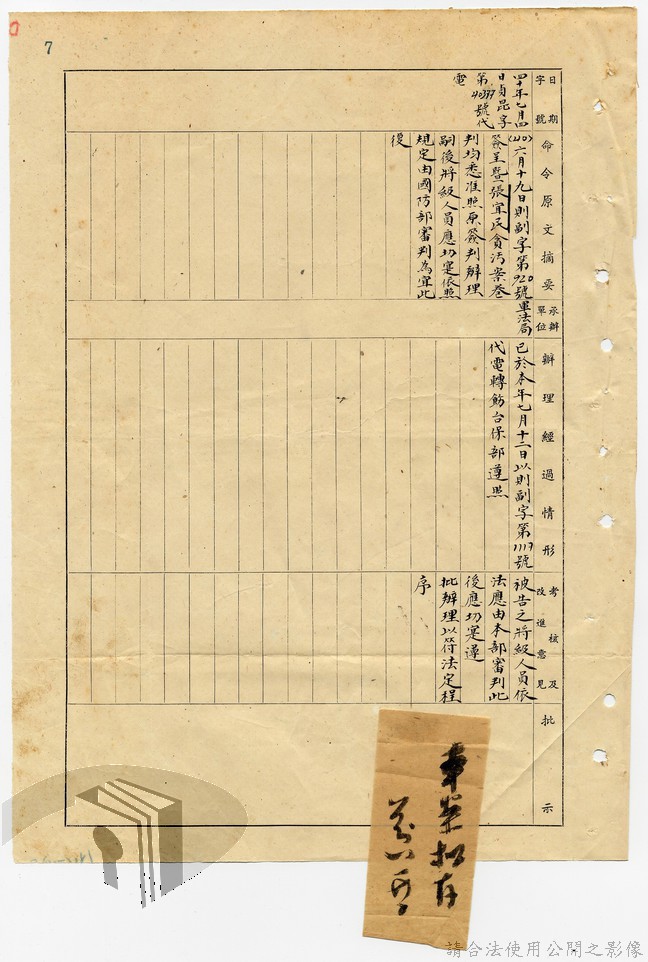 7
日期
字號
命令原文摘要
承辦
單位
辦理經過情形
考核及
改進意見
批示
四十年七月四
日貞昆字
第40399號代
電
六月十九日則副字第920號
簽呈暨張宜民貪污案卷
判均悉准照原簽判辦理
嗣後將級人員應切定依照
規定由國防部審判為宜此
復
軍法局
已於本年七月十二日以則副字第1117號
代電轉飭台保部遵照
被告之將級人員依
法應由本部審判此
後應切定遵
批辦理以符法定程
序
本案擬存
請合法使用公開之影像